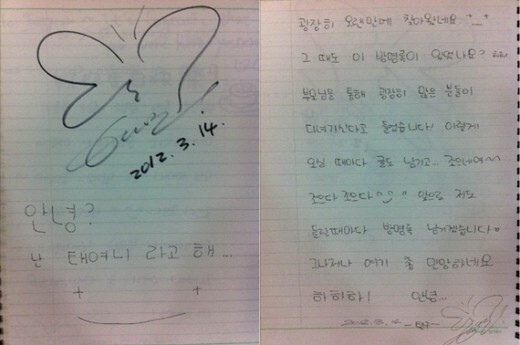 2012. 3. 14.
안녕?
난 태여니 라고 해...
굉장히 오랜만에 찾아왔네요 ^_^
그 때도 이 방명록이 있었나요?
부모님을 통해 굉장히 많은 분들이
다녀가신다고 들었습니다! 이렇게
오실 때마다 글도 남기고.. 조으네여~~
조으다 조으다 ^^ 앞으로 저도
들릴때마다 방명록 남기겠습니다
그나저나 여기 좀 민망하네요
히히히!